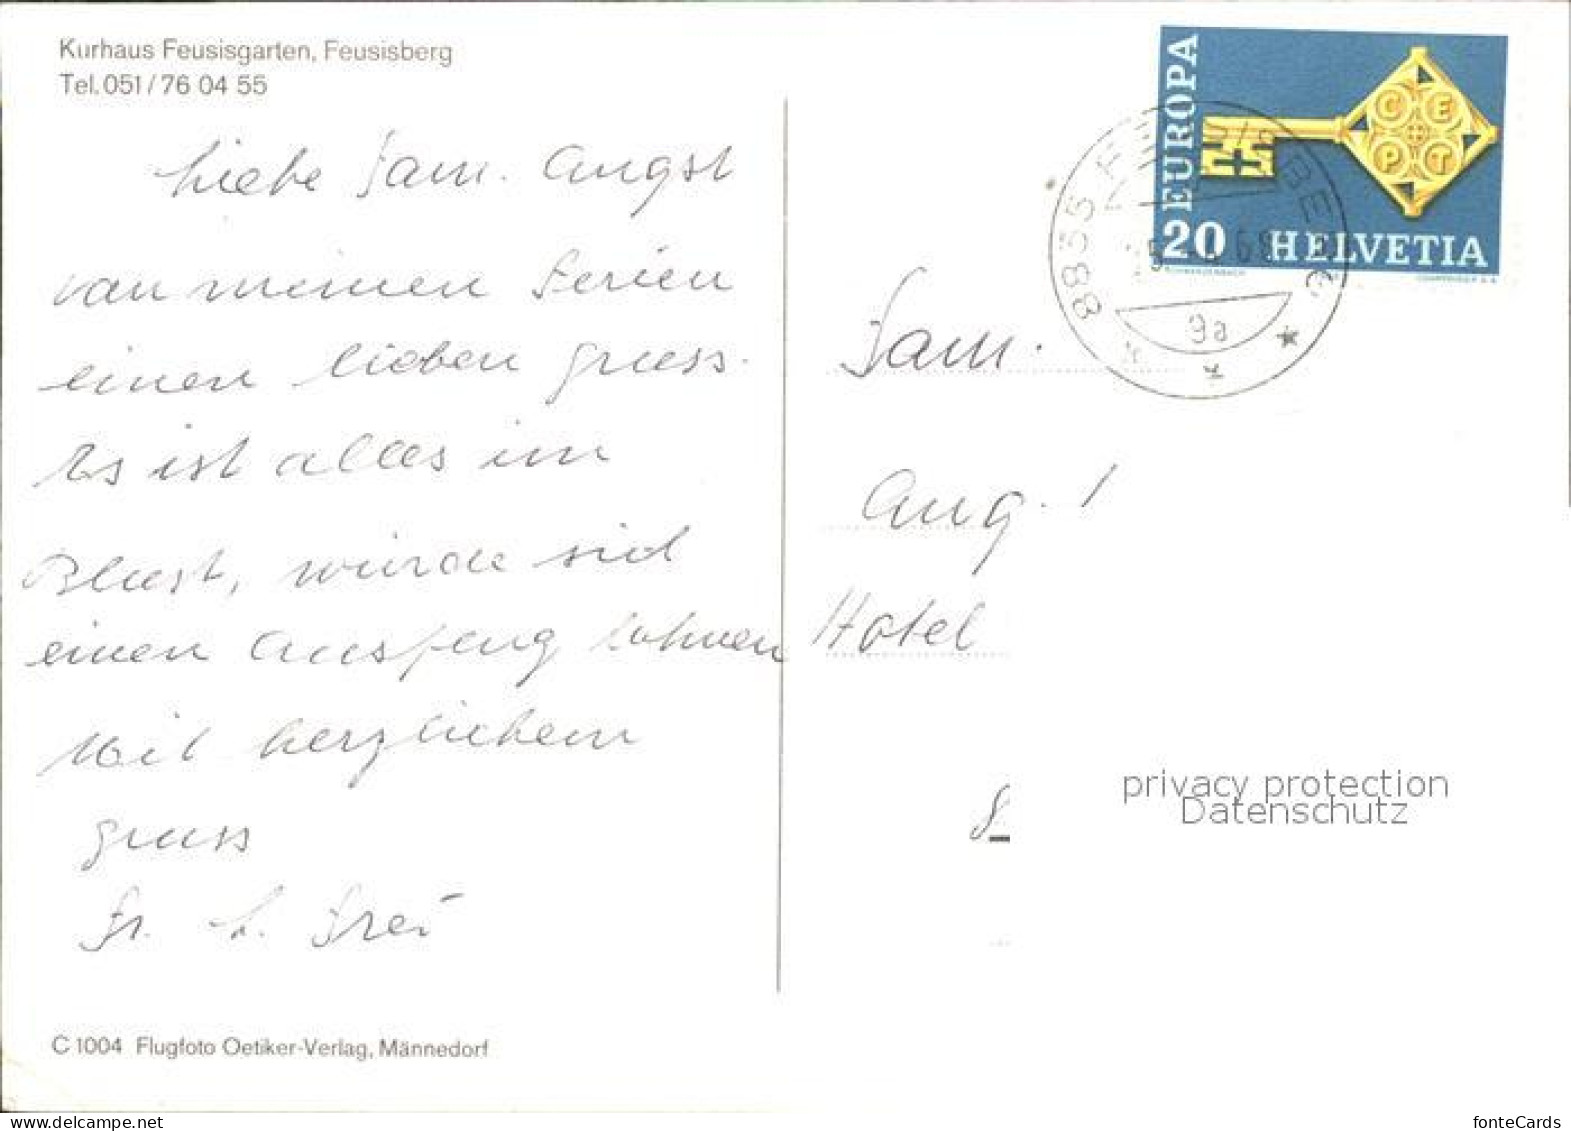 Kurhaus Feusisgarten, Feusisberg
Tel. 051 / 76 04 55
liebe Fam. Angst
von meinen Ferien
einen lieben gruss.
Es ist alles im
Bluest, würde sich
einen Ausflug lohnen
Mit herzlichem
gruss
Fr. L. Frei
C 1004 Flugfoto Oetiker-Verlag, Männedorf
EUROPA
CEPT
20 HELVETIA
8835 FEUSISBERG
9a
Fam.
Ang
Hotel
privacy protection
Datenschutz
fonteCards